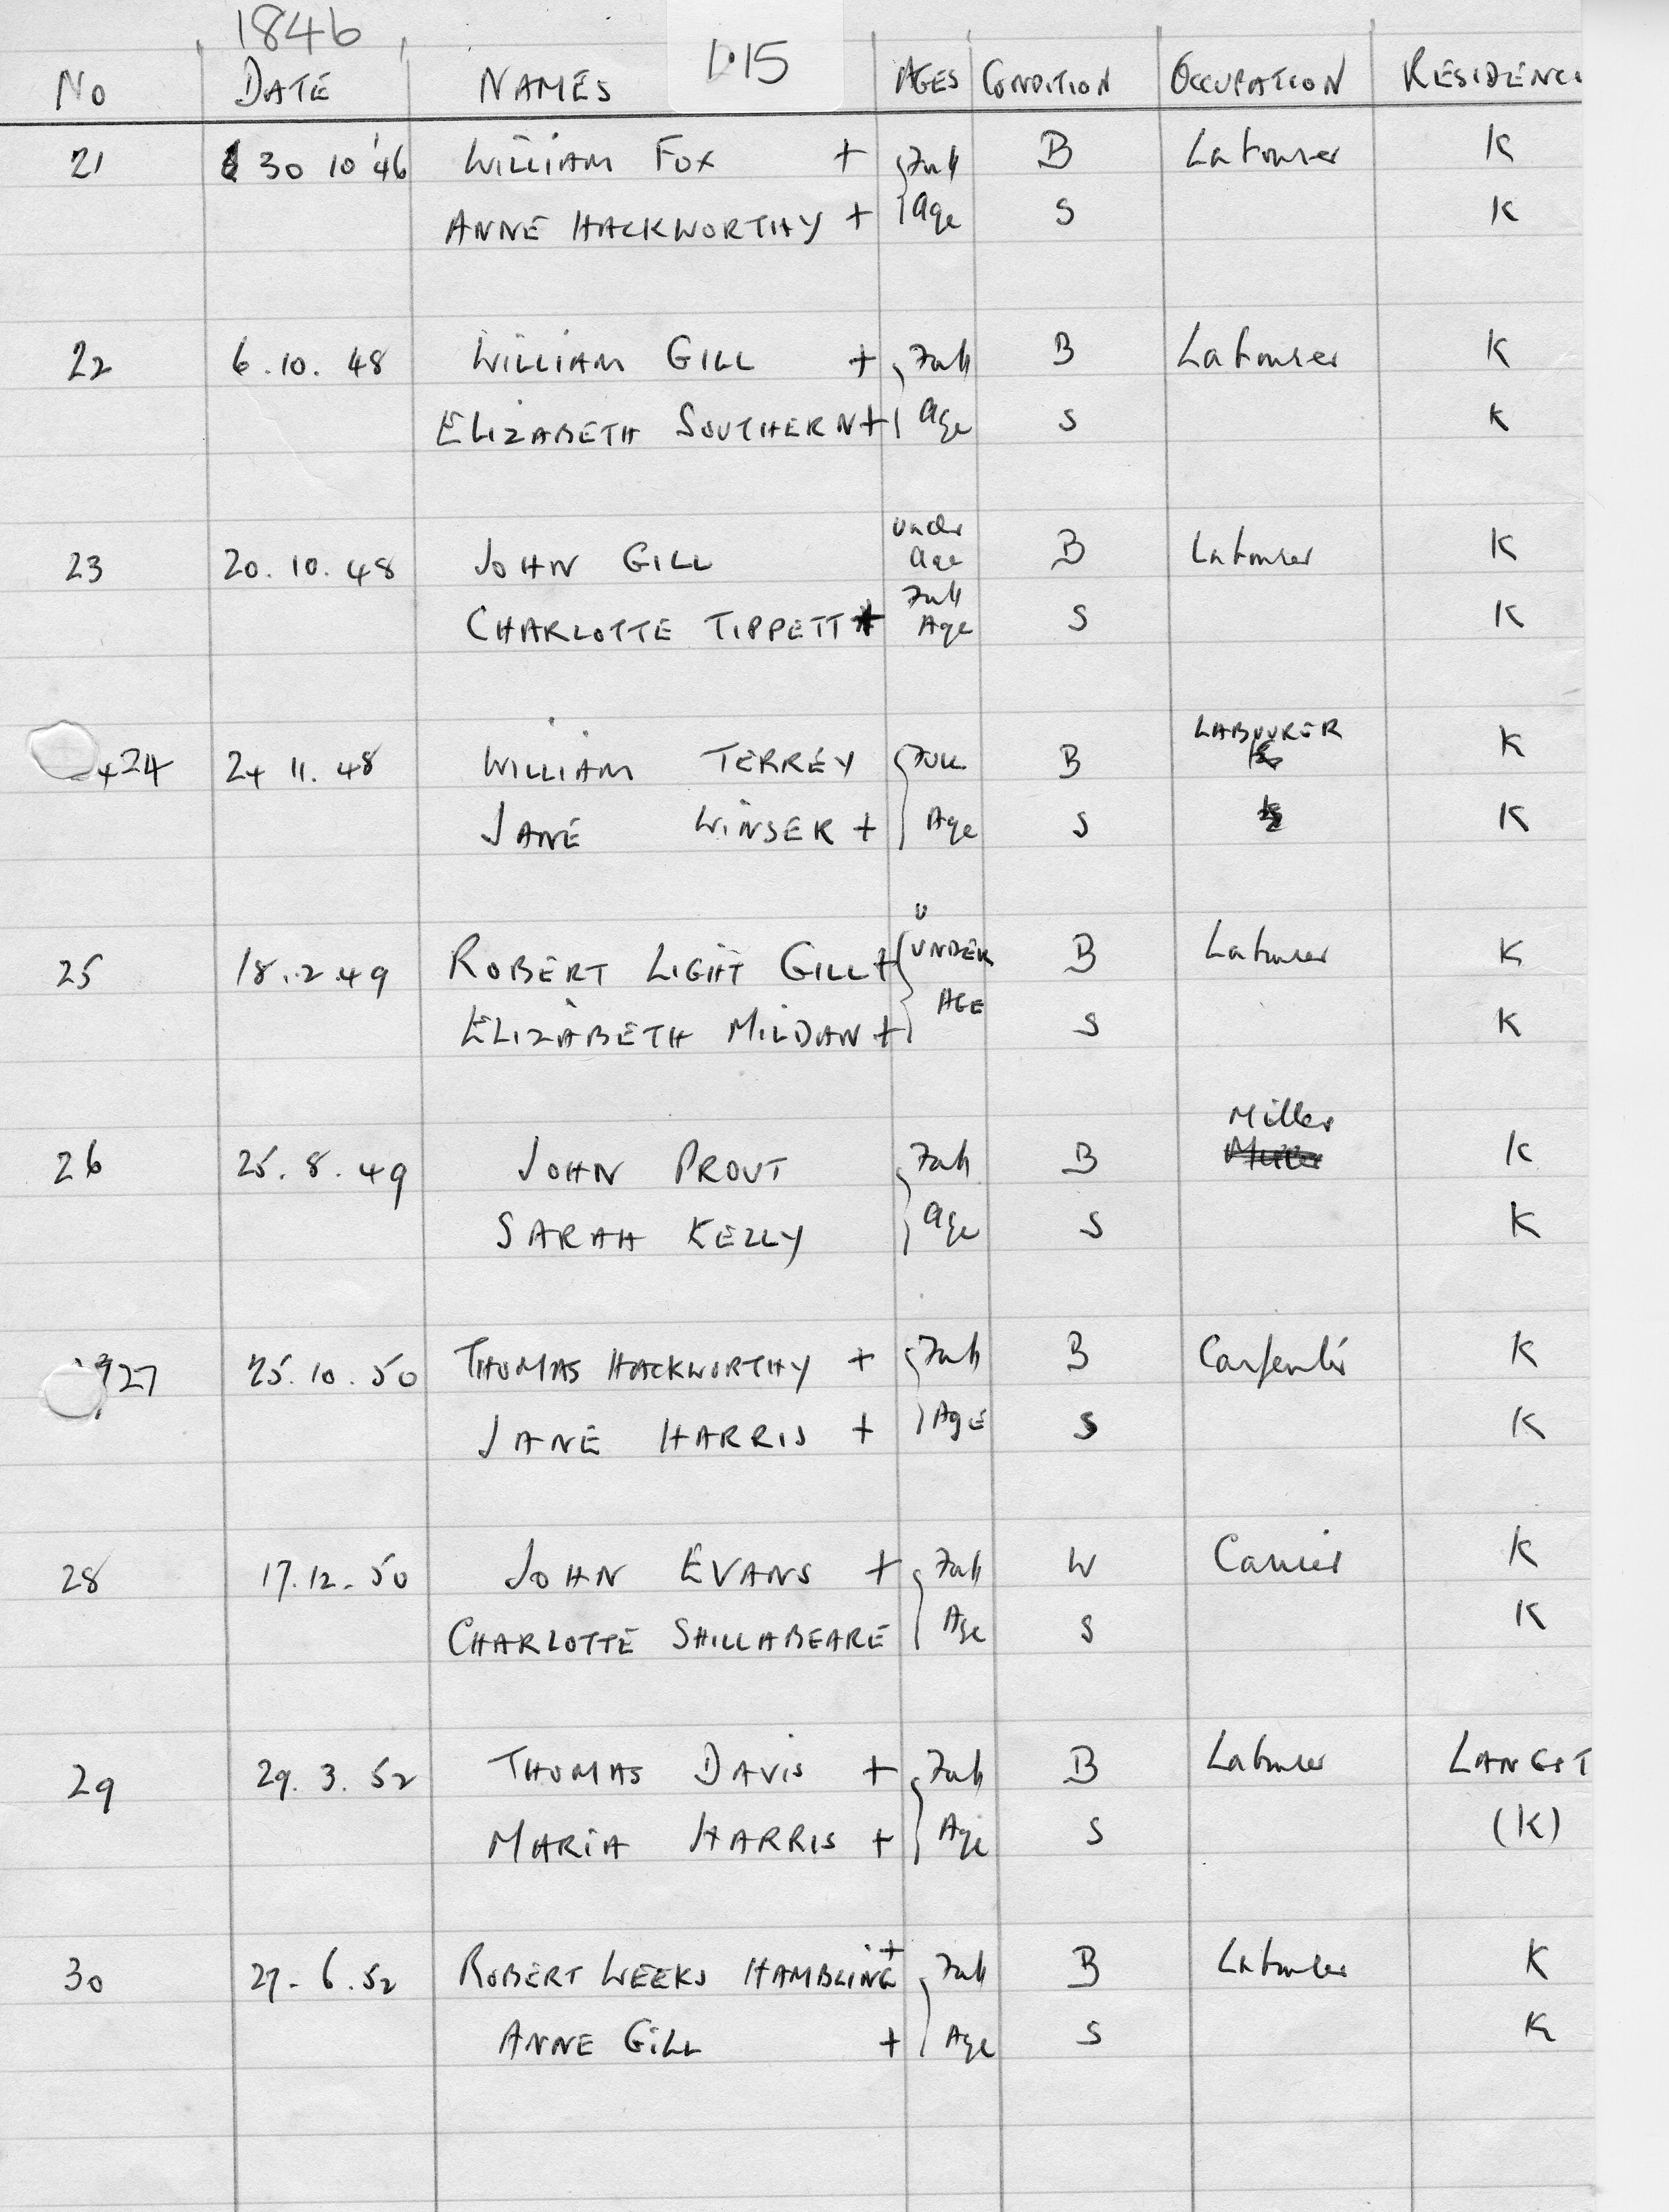 1846
1.15
No DATE NAMES AGES CONDITION OCCUPATION RESIDENC
21 30 10 '46 WILLIAM FOX + Full B Labourer K
ANNE HACKWORTHY + Age S K
22 6.10.48 WILLIAM GILL + Full B Labourer K
ELIZABETH SOUTHERN + Age S K
Under
23 20.10.48 JOHN GILL Age B Labourer K
Full
CHARLOTTE TIPPETT + Age S K
LABOURER
24 24 11.48 WILLIAM TERREY Full B K
JANE WINSER + Age S K
U
25 18.2.49 ROBERT LIGHT GILL + UNDER B Labourer K
AGE
ELIZABETH MILDAN + S K
Miller
26 25.8.49 JOHN PROUT Full B K
SARAH KELLY Age S K
27 25.10.50 THOMAS HACKWORTHY + Full B Carpenter K
JANE HARRIS + AgE S K
28 17.12.50 JOHN EVANS + Full W Carrier K
CHARLOTTE SHILLABEARE Age S K
29 29.3.52 THOMAS DAVIS + Full B Labourer LANGST
MARIA HARRIS + Age S (K)
+
30 27-6.52 ROBERT WEEKS HAMBLING Full B Labourer K
ANNE GILL + Age S K